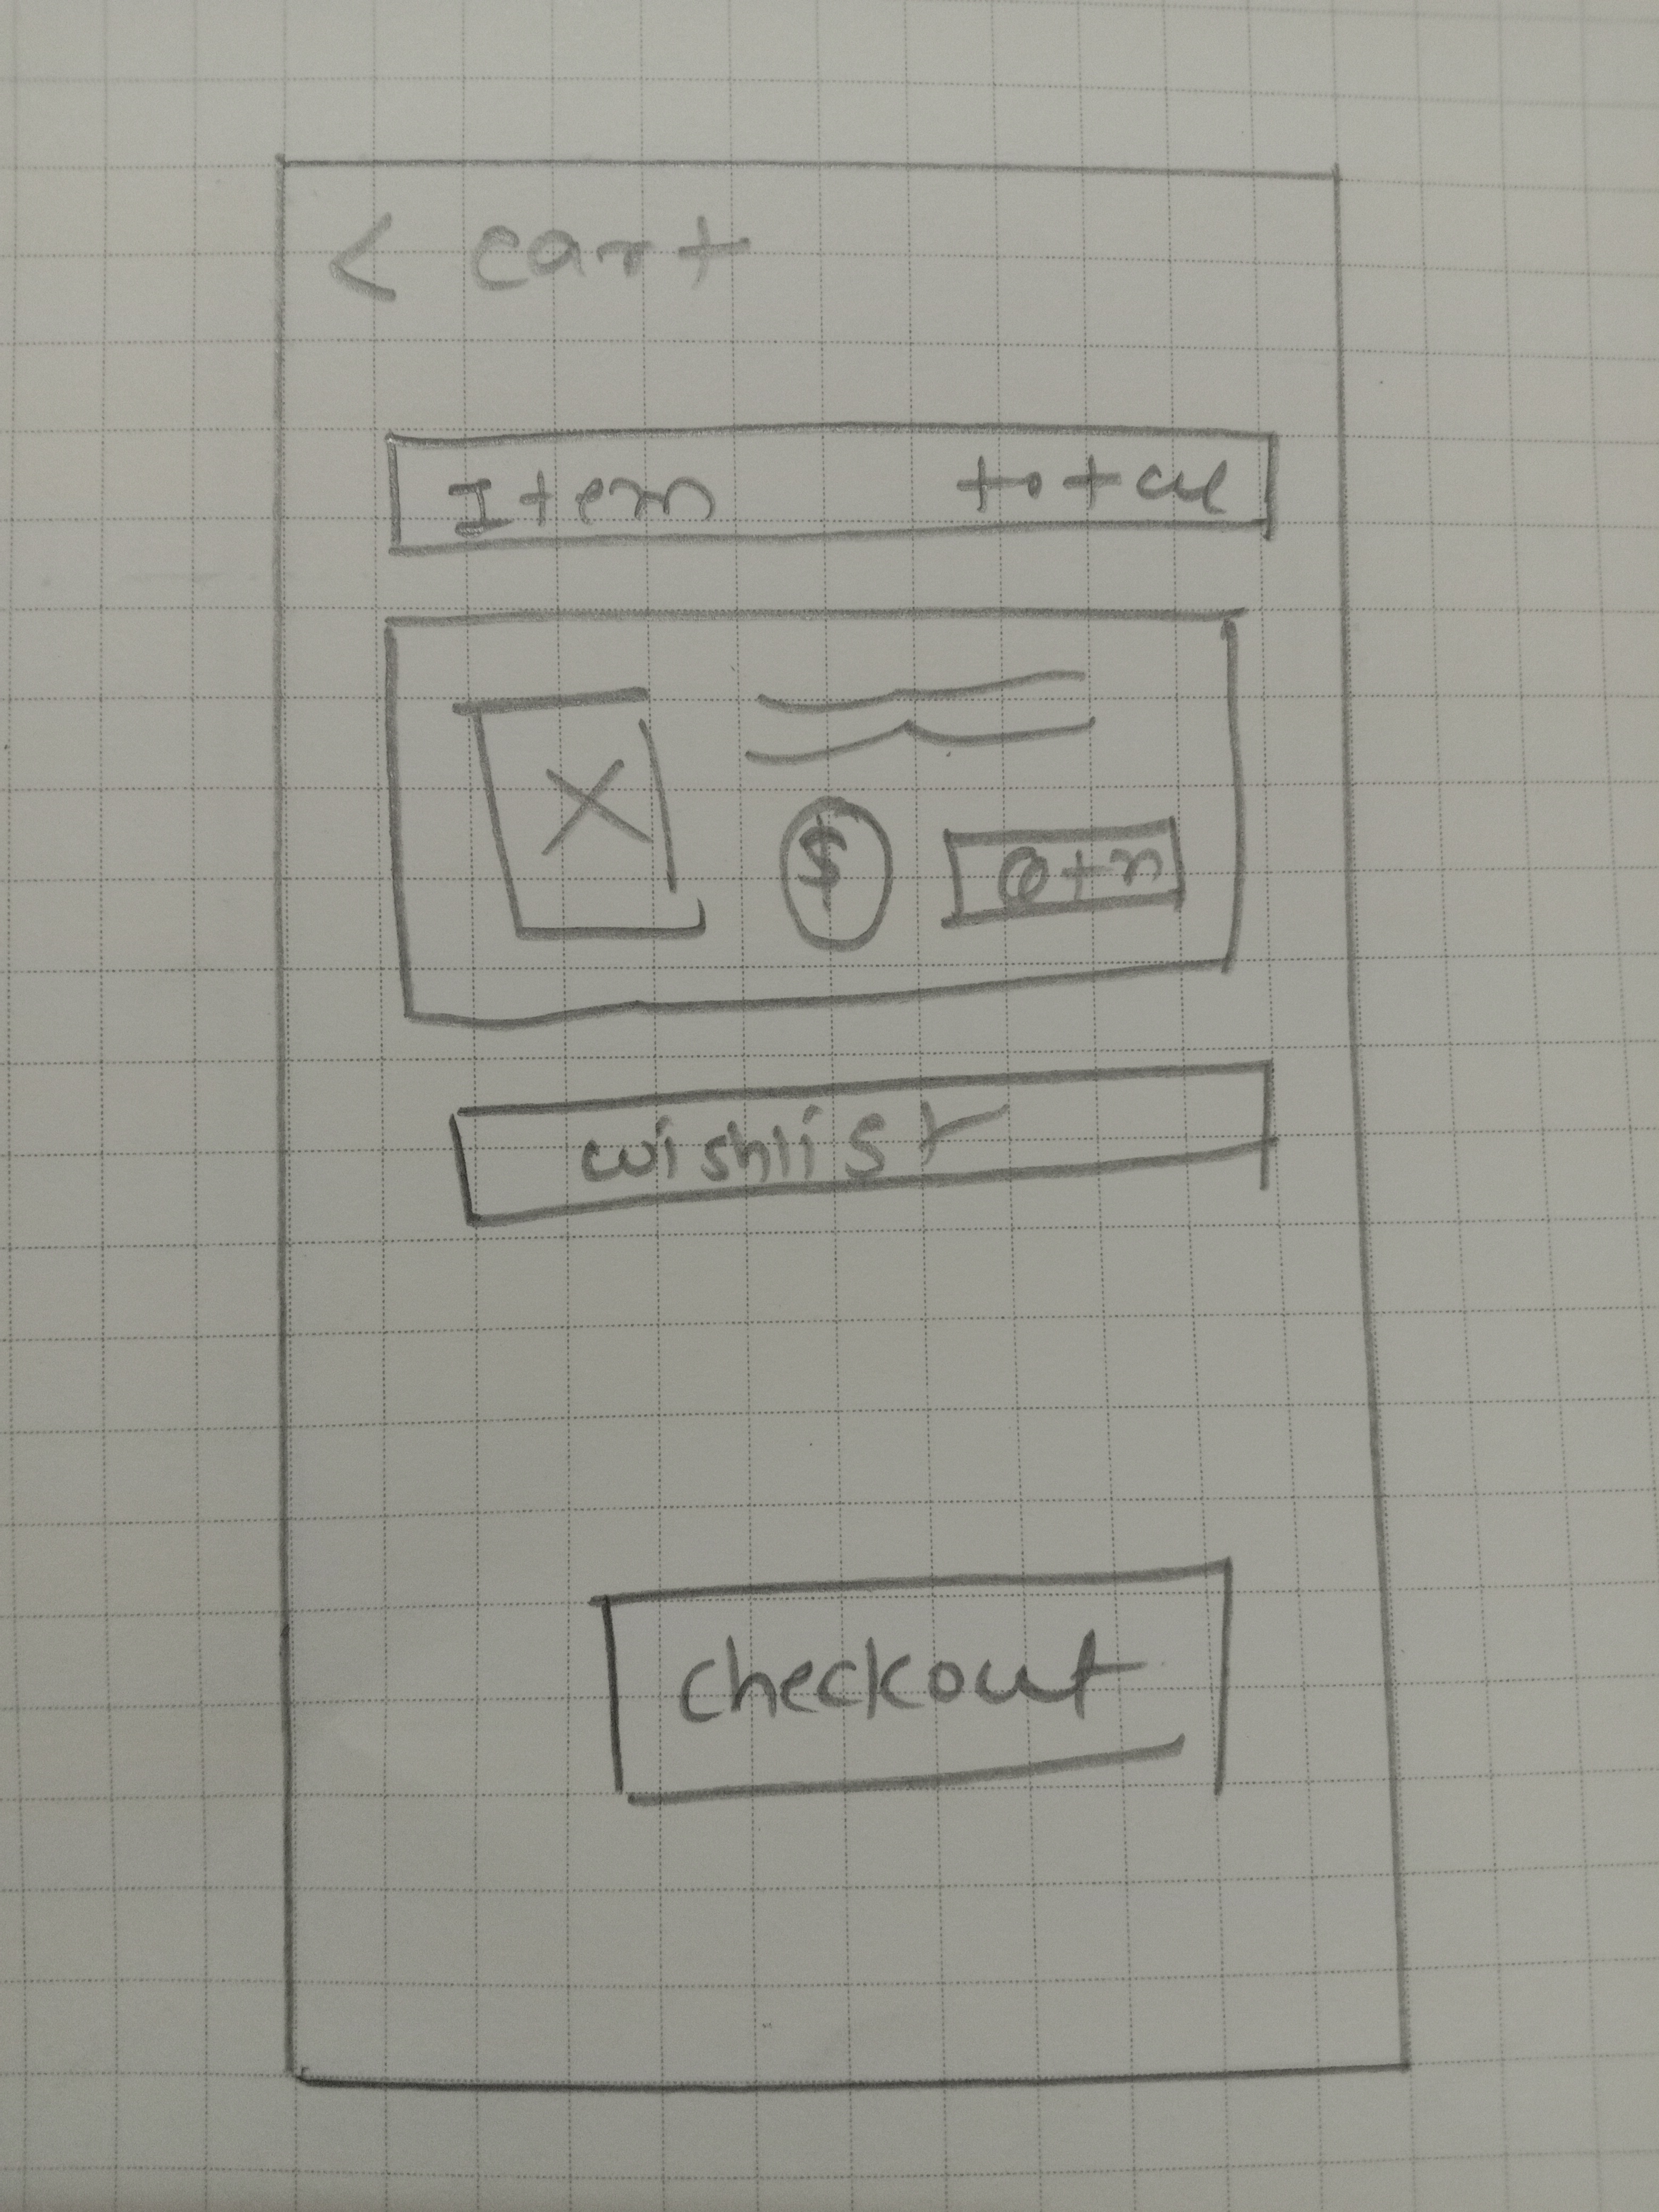 < cart
Item total
$ Qtn
wishlist
checkout